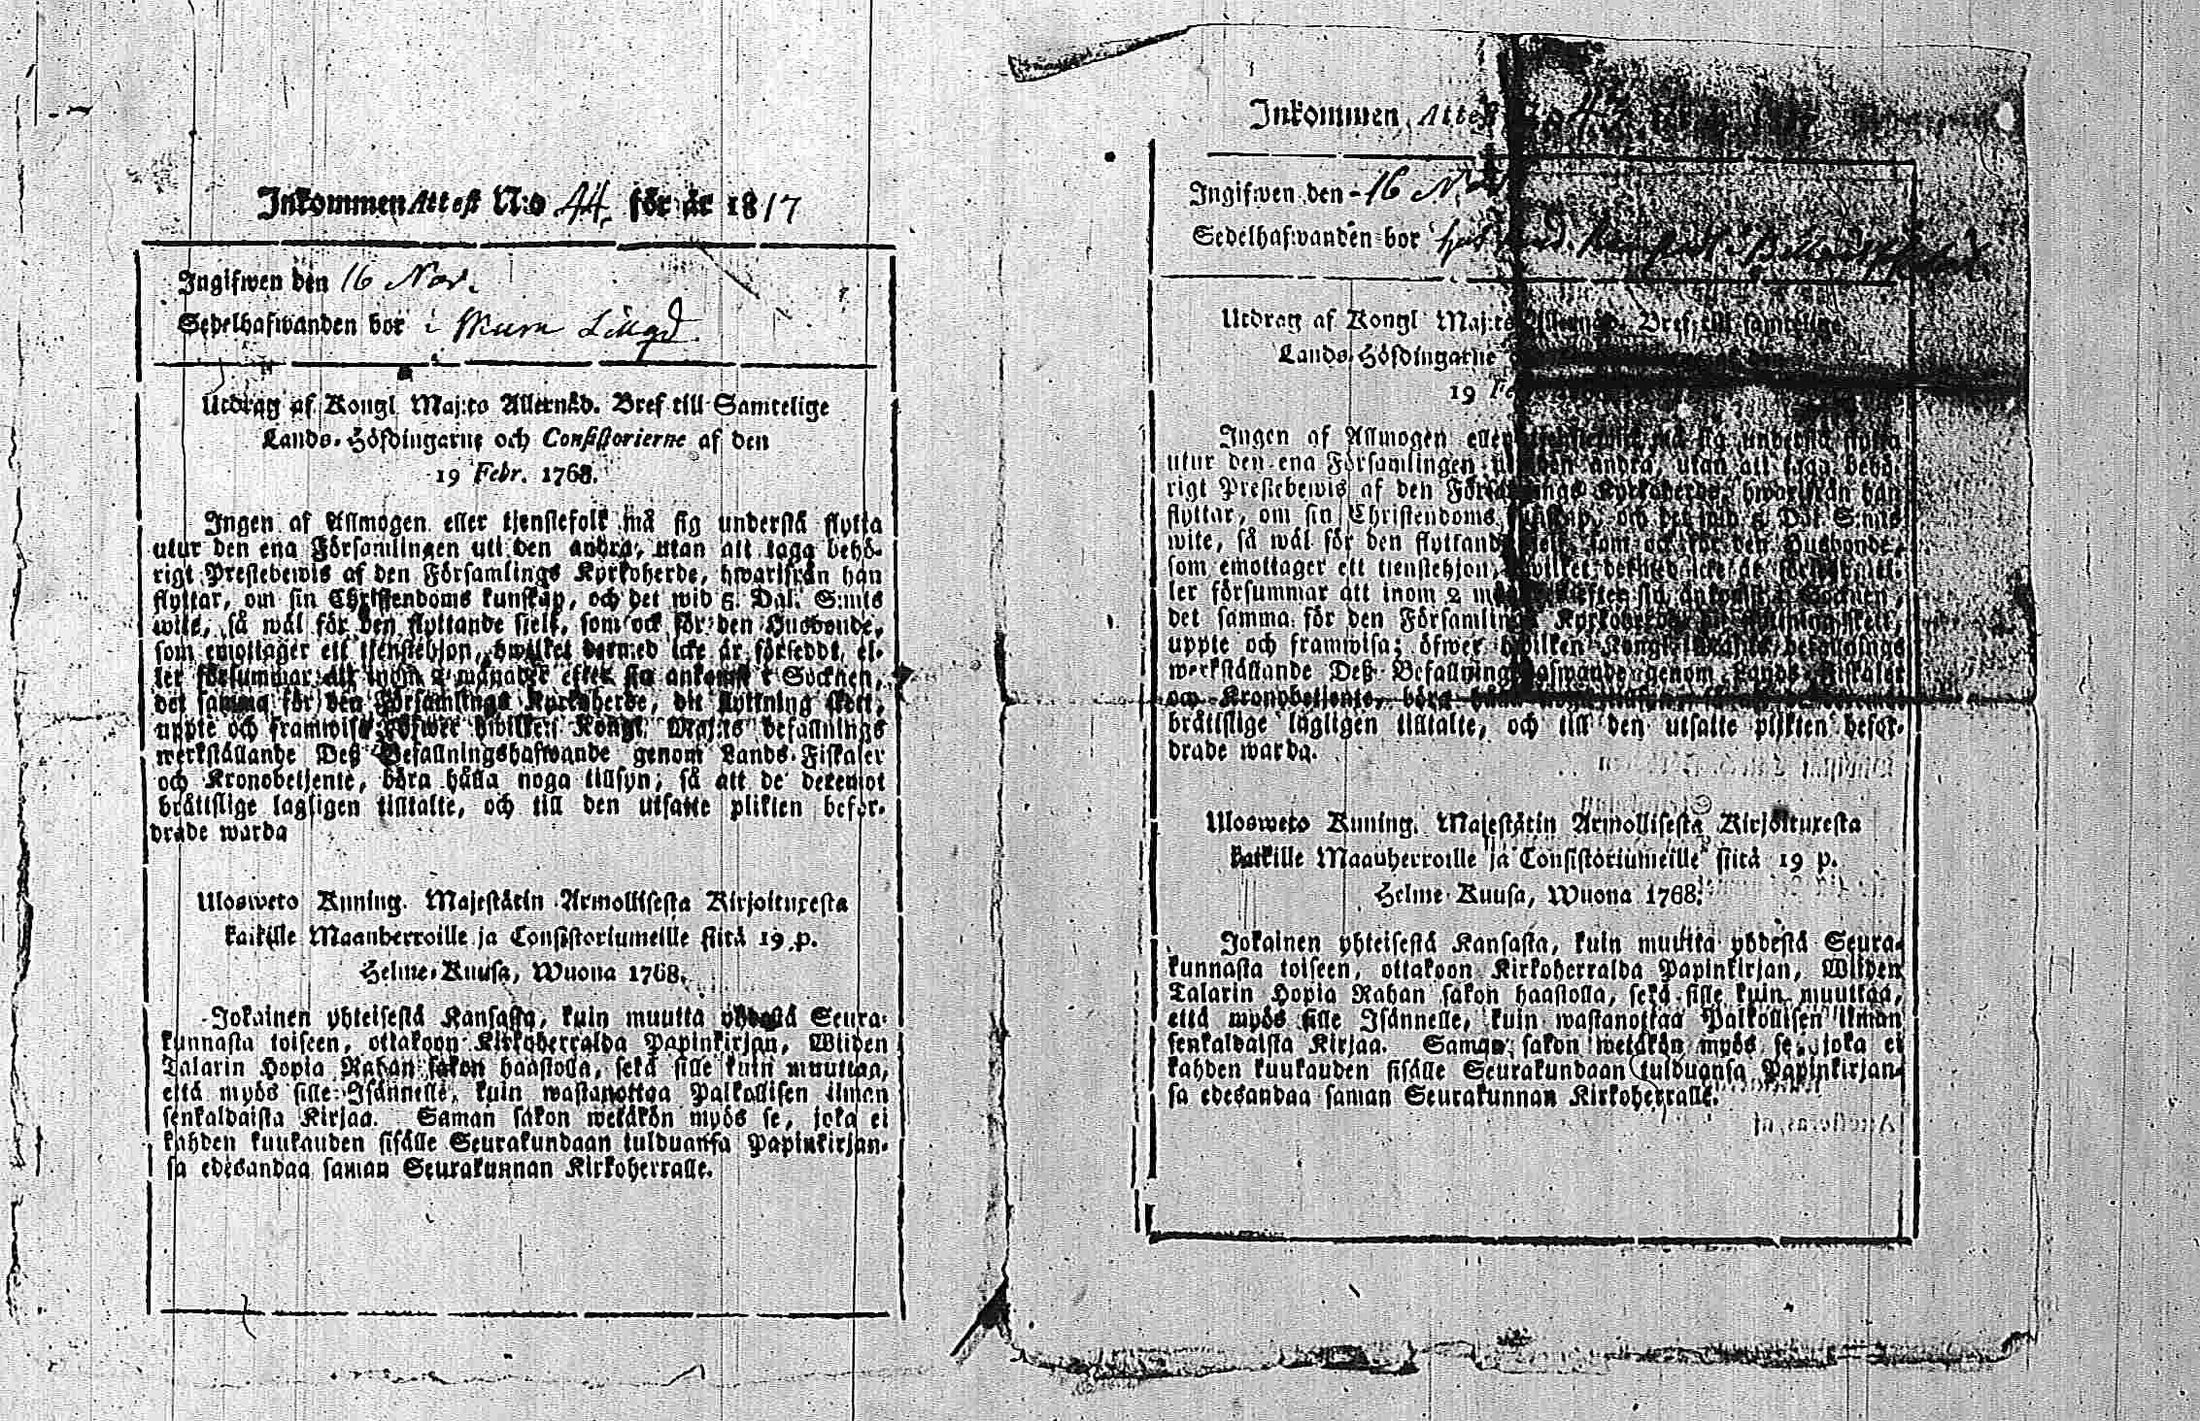 Inkommen Attest N:o 44. för år 1817
Ingifwen den 16 Nov.
Sedelhafwanden bor i
Utdrag af Kongl. Maj:ts Allernåd. Bref till Samtelige
Lands-Höfdingarne och Consistorierne af den
19 Febr. 1768.
Ingen af Allmogen eller tjenstefolk må sig understå flytta
utur den ena Församlingen uti den andra, utan att taga behö-
rigt Prestebewis af den Församlings Kyrkoherde, hwarifrån han
flyttar, om sin Christendoms kunskap, och det wid 5. Dal. S:mts
wite, så wäl för den flyttande sjelf, som ock för den Husbonde,
som emottager ett tjenstehjon, hwilket dermed icke är försedt, el-
ler försummar att inom 2 månader efter sin ankomst i Socknen,
det samma för den Församlings Kyrkoherde, dit flyttning skett,
uppte och framwisa; öfwer hwilken Kongl. Maj:ts befallnings
werkställande Deß Befallningshafwande genom Lands-Fiskaler
och Kronobetjente, böra hålla noga tillsyn; så att de deremot
bråttslige lagligen tilltalte, och till den utsatte plikten befor-
drade warda
Ulosweto Kuning. Majestätin Armollisesta Kirjoituxesta
kaikille Maanherroille ja Consistoriumeille siitä 19 p.
Helme-Kuusa, Wuona 1768.
Jokainen yhteisestä Kansasta, kuin muutta yhdestä Seura-
kunnasta toiseen, ottakoon Kirkoherralda Papinkirjan, Wiiden
Talarin Hopia Rahan sakon haastolla, sekä sille kuin muuttaa,
että myös sille Isännelle, kuin wastanottaa Palkollisen ilman
senkaldaista Kirjaa. Saman sakon wetäkön myös se, joka ei
kahden kuukauden sisälle Seurakundaan tulduansa Papinkirjan-
sa edesandaa saman Seurakunnan Kirkoherralle.
Inkommen Attest
Ingifwen den 16
Sedelhafwanden bor
Utdrag af Kongl Maj:ts Allernåd. Bref till samtelige
Lands-Höfdingarne
19
Ingen af Allmogen eller tjenstefolk må sig understå flytta
utur den ena Församlingen uti den andra, utan att taga behö-
rigt Prestebewis af den Församlings Kyrkoherde, hwarifrån han
flyttar, om sin Christendoms kunskap, och det wid 5 Dal. S:mts
wite, så wäl för den flyttande sjelf, som ock för den Husbonde,
som emottager ett tienstehjon, hwilket dermed icke är försedt, el-
ler försummar att inom 2 månader efter sin ankomst i Socknen,
det samma för den Församlings Kyrkoherde, dit flyttning skett,
uppte och framwisa; öfwer hwilken Kongl. Maj:ts befallnings
werkställande Deß Befallningshafwande genom Lands-Fiskaler
och Kronobetjente, böra hålla
bråttslige lagligen tilltalte, och till den utsatte plikten befor-
drade warda.
Ulosweto Kuning. Majestätin Armollisesta Kirjoituxesta
kaikille Maauherroille ja Consistoriumeille siitä 19 p.
Helme-Kuusa, Wuona 1768.
Jokainen yhteisestä Kansasta, kuin muutta yhdestä Seura-
kunnasta toiseen, ottakoon Kirkoherralda Papinkirjan, Wiiden
Talarin Hopia Rahan sakon haastolla, sekä sille kuin muuttaa,
että myös sille Isännelle, kuin wastanottaa Palkollisen ilman
senkaldaista Kirjaa. Saman sakon wetäkön myös se, joka ei
kahden kuukauden sisälle Seurakundaan tulduansa Papinkirjan-
sa edesandaa saman Seurakunnan Kirkoherralle.